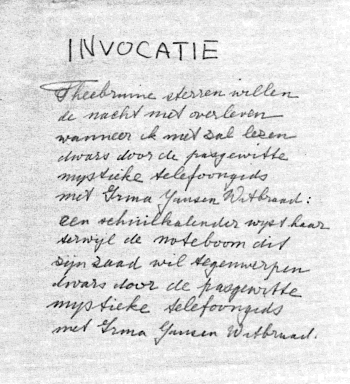 INVOCATIE
Theebruine sterren willen
de nacht niet overleven
wanneer ik niet zal lezen
dwars door de pasgewitte
mystieke telefoongids
met Irma Jansen Witbraad:
een schrilkalender wijst haar
terwijl de noteboom dit
zijn zaad wil tegenwerpen
dwars door de pasgewitte
mystieke telefoongids
met Irma Jansen Witbraad.